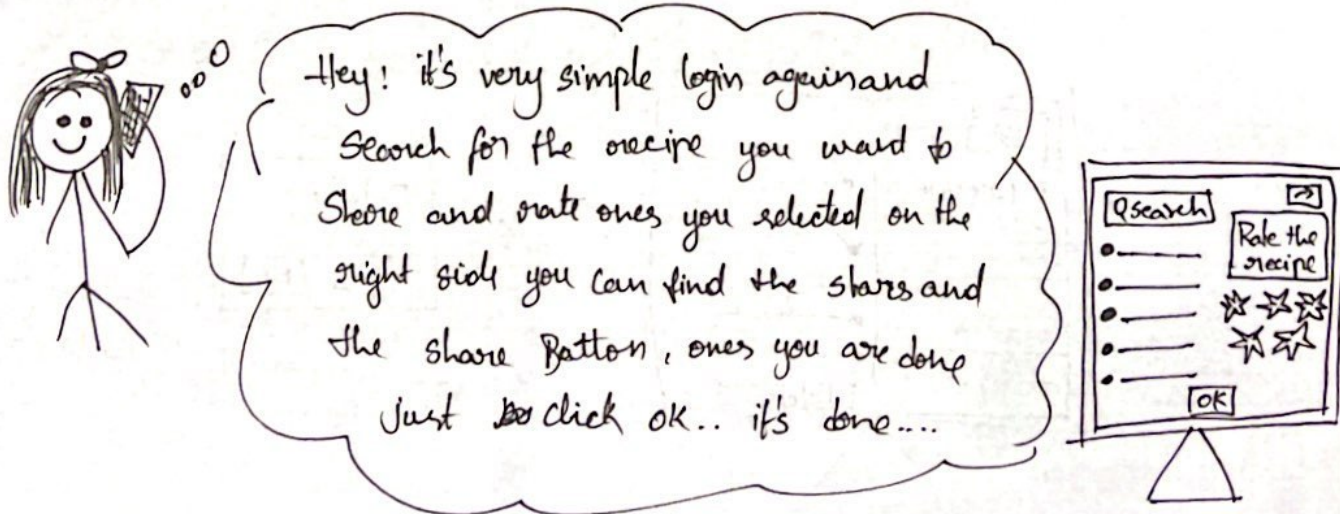 Hey! it's very simple login again and
Search for the recipe you want to
Share and rate ones you selected on the
right side you can find the stars and
the share Button, ones you are done
just click ok.. it's done....
Search
Rate the
recipe
OK